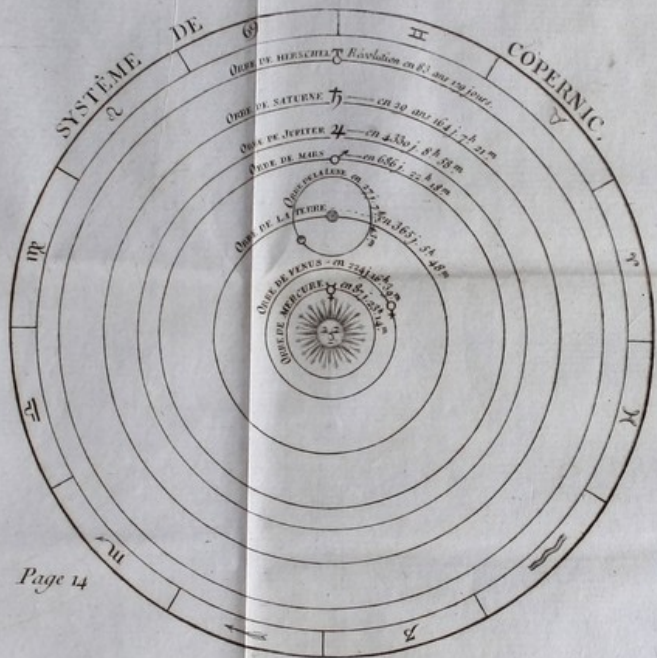 SYSTÊME DE COPERNIC.
ORBE DE HERSCHEL Révolution en 83. ans 129 jours.
ORBE DE SATURNE ♄ en 29 ans 164 j. 7ʰ 21ᵐ
ORBE DE JUPITER ♃ en 4330 j. 8ʰ 58ᵐ
ORBE DE MARS ♂ en 686 j. 22ʰ 18ᵐ
ORBE DE LA LUNE en 27 j. 7ʰ
ORBE DE LA TERRE en 365 j. 5ʰ 48ᵐ
ORBE DE VENUS - en 224 j. 16ʰ
ORBE DE MERCURE ☿ en 87 j. 23ʰ 14ᵐ
Page 14